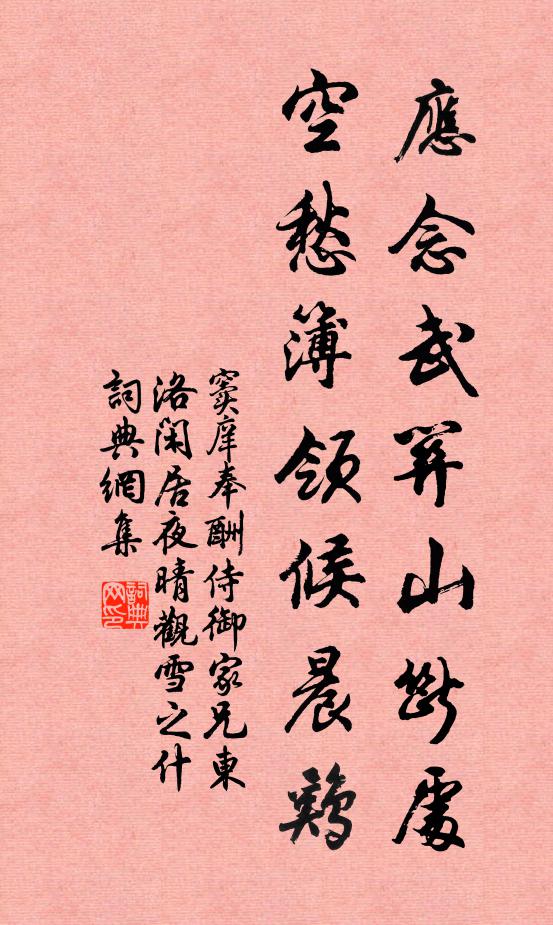 應念武關山斷處
空愁簿領候晨鷄
竇庠奉酬侍御家兄東
洛閑居夜晴觀雪之什
詞典網集
詞典
网印